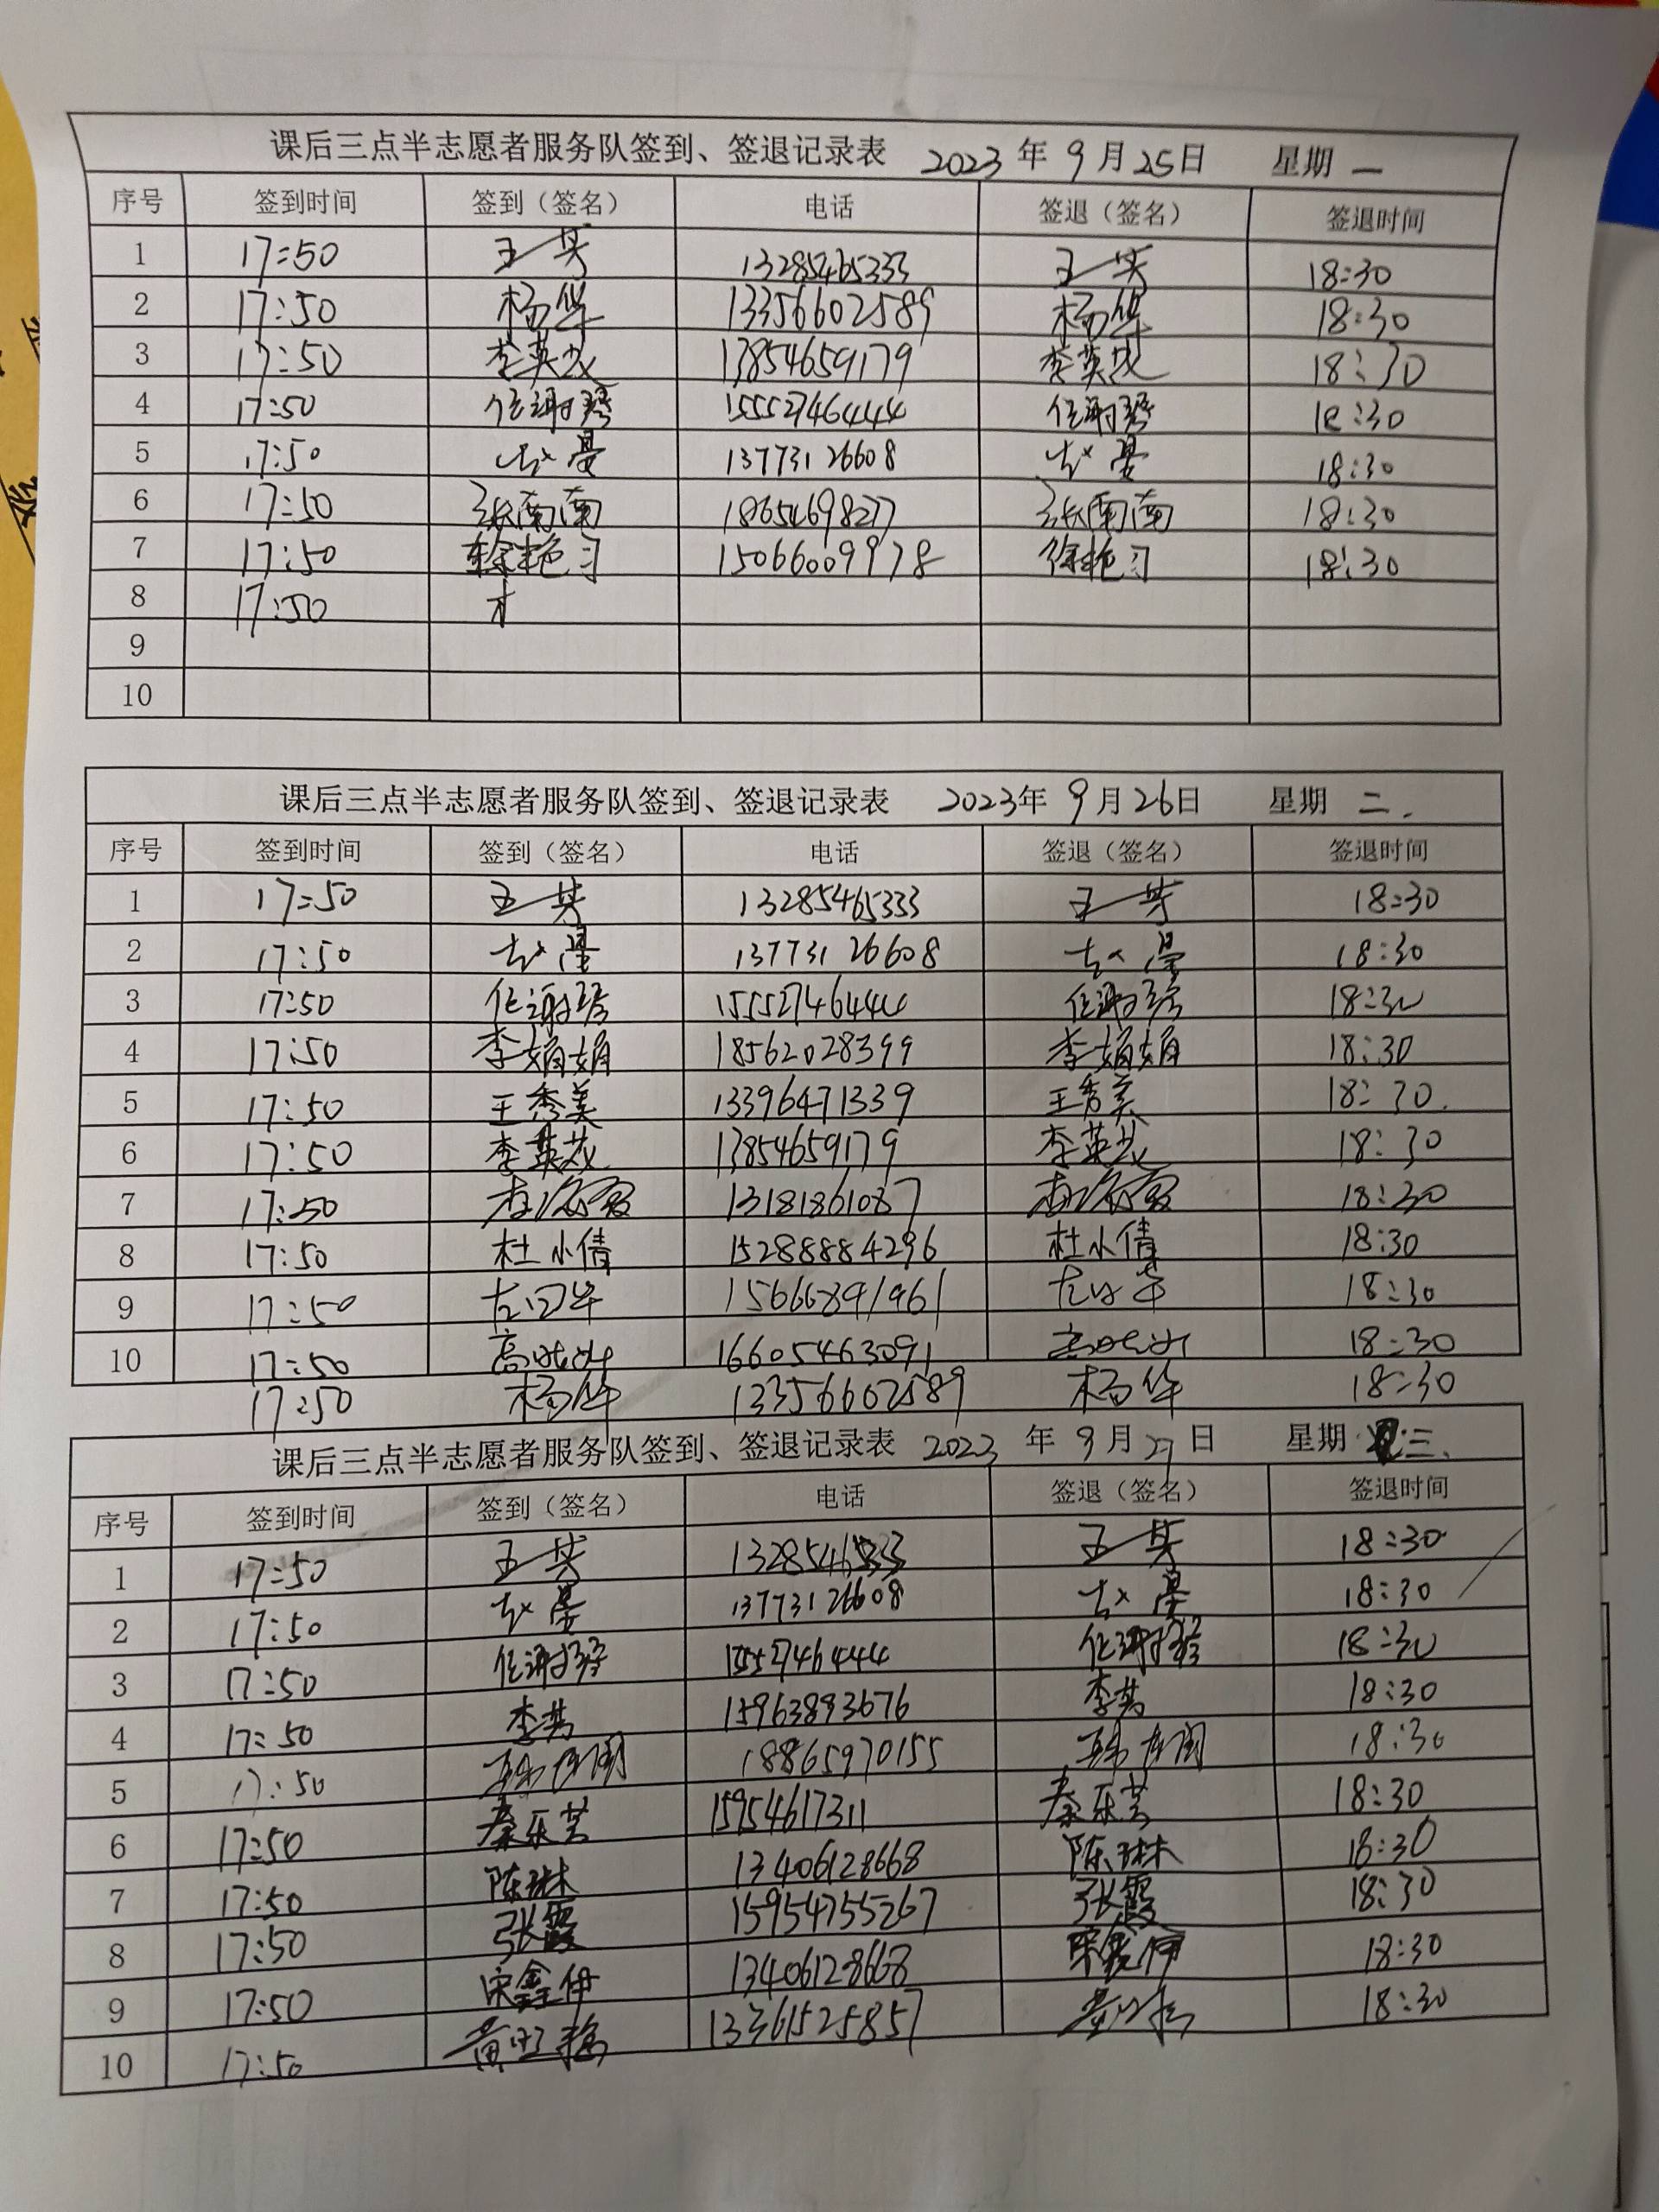 课后三点半志愿者服务队签到、签退记录表 2023年9月25日 星期一
序号 签到时间 签到（签名） 电话 签退（签名） 签退时间
1 17:50 王 13285465333 王 18:30
2 17:50 杨华 13356602589 杨华 18:30
3 17:50 李英茂 13854659179 李英茂 18:30
4 17:50 任谢 15552746444 任谢 18:30
5 17:50 赵曼 13773126608 赵曼 18:30
6 17:50 张南南 18654698277 张南南 18:30
7 17:50 徐艳 15066009978 徐艳 18:30
8 17:50
9
10
课后三点半志愿者服务队签到、签退记录表 2023年9月26日 星期二.
序号 签到时间 签到（签名） 电话 签退（签名） 签退时间
1 17:50 王 13285465333 王 18:30
2 17:50 赵曼 13773126608 赵曼 18:30
3 17:50 任谢 15552746444 任谢 18:30
4 17:50 李娟娟 18562028399 李娟娟 18:30
5 17:50 王秀美 13396471339 王秀美 18:30.
6 17:50 李英茂 13854659179 李英茂 18:30
7 17:50 13181861087 18:30
8 17:50 杜小倩 15288884296 杜小倩 18:30
9 17:50 15666891961 18:30
10 17:50 高 16605463091 高 18:30
17:50 杨华 13356602589 杨华 18:30
课后三点半志愿者服务队签到、签退记录表 2023年9月27日 星期三、
序号 签到时间 签到（签名） 电话 签退（签名） 签退时间
1 17:50 王 王 18:30
2 17:50 赵曼 13773126608 赵曼 18:30
3 17:50 任谢 15552746444 任谢 18:30
4 17:50 李 15963893676 李 18:30
5 17:50 18865970155 18:30
6 17:50 秦乐芸 15954617311 秦乐芸 18:30
7 17:50 陈琳 13406128668 陈琳 18:30
8 17:50 张霞 15954755267 张霞 18:30
9 17:50 宋鑫伊 13406128668 宋鑫伊 18:30
10 17:50 黄 13361525857 黄 18:30